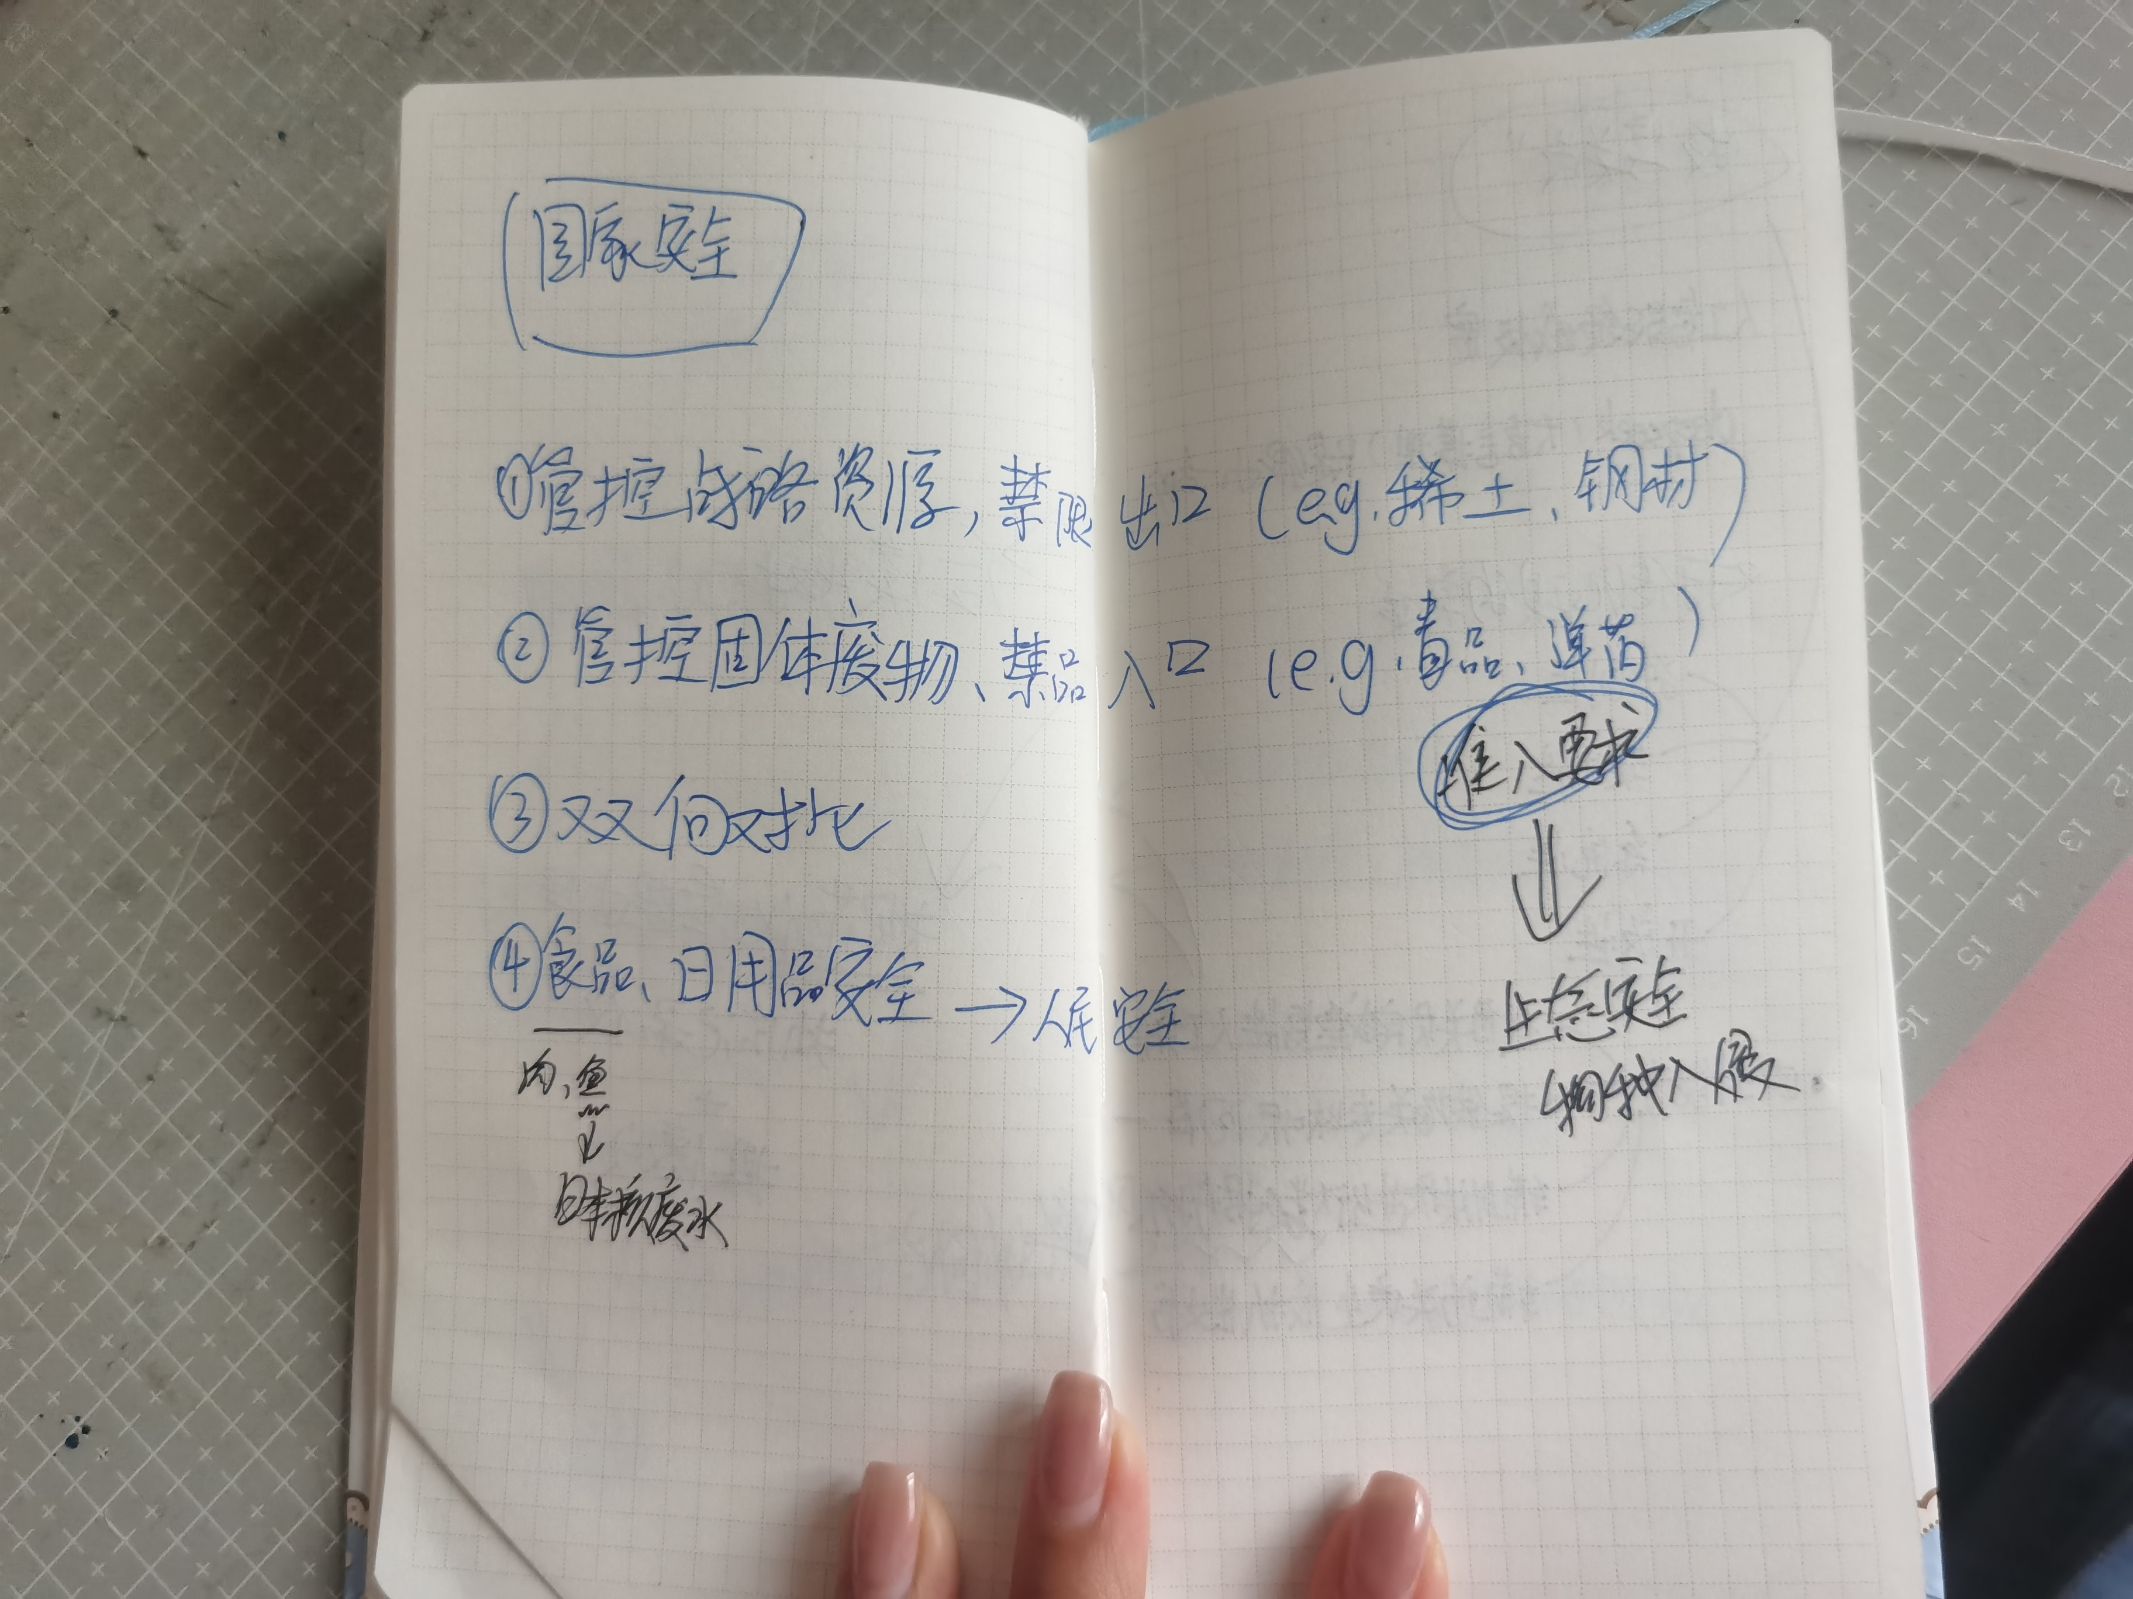 国家安全
①管控战略资源,禁限出口(e.g.稀土、钢材)
②管控固体废物、禁品入口(e.g.毒品、弹药)
准入要求
③双向对比
④食品、日用品安全→人民安全
生态安全
肉、鱼
物种入侵.
日本核废水